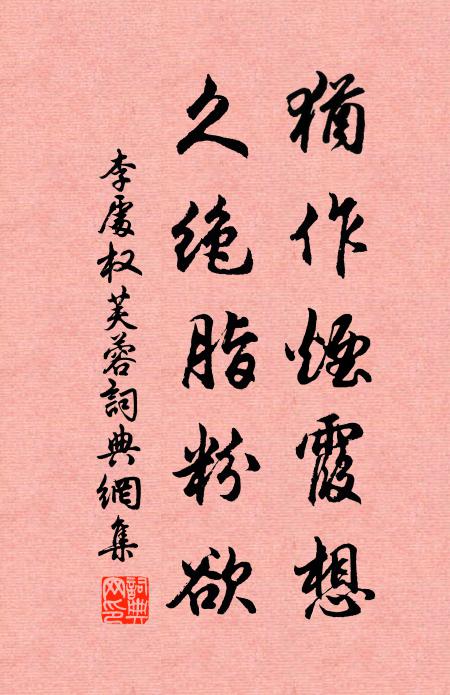 猶作煙霞想
久绝脂粉欲
李處权芙蓉詞典網集
詞典
网印